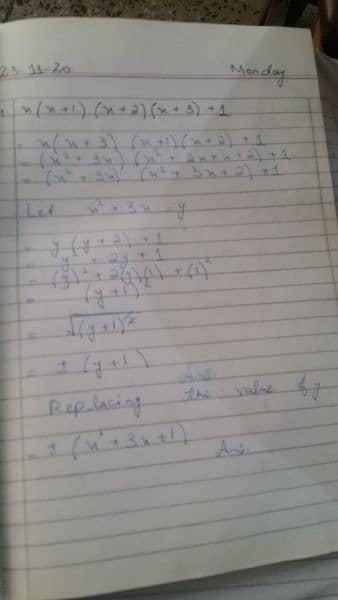 23-11-20 Monday
x(x+1) (x+2)(x+3) +1
= x(x+3) (x+1)(x+2) +1
= (x²+3x) (x²+2x+x+2) +1
= (x²+3x) (x²+3x+2) +1
Let x²+3x = y
= y (y+2) +1
= y² + 2y + 1
= (y)² + 2(y)(1) + (1)²
= (y+1)²
= √(y+1)²
= ± (y+1)
Ans
Replacing the value of y
= ± (x²+3x+1) Ans.